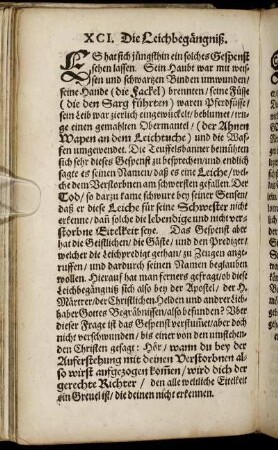 XCI. Die Leichbegängniß.
ES hat sich jüngsthin ein solches Gespenst
sehen lassen. Sein Haubt war mit weis-
sen und schwartzen Binden umwunden/
seine Hände (die Fackel) brennten/ seine Füsse
(die den Sarg führten) waren Pferdsfüsse/
sein Leib war zierlich eingewickelt/ beblumet/ tru-
ge einen gemahlten Obermantel/ (der Ahnen
Wapen an dem Leichtuche) und die Waf-
fen umgewendet. Die Teuffelsbanner bemühten
sich sehr dieses Gespenst zu besprechen/ und endlich
sagte es seinen Namen/ daß es eine Leiche/ wel-
che dem Verstorbnen am schwersten gefallen. Der
Tod/ so darzu kame schwure bey seiner Sensen/
daß er diese Leiche für seine Schwester nicht
erkenne/ dañ solche die lebendige und nicht ver-
storbne Eitelkeit seye. Das Gespenst aber
hat die Geistlichen/ die Gäste/ und den Prediger/
welcher die Leichpredigt gethan/ zu Zeugen ange-
ruffen/ und dardurch seinen Namen beglauben
wollen. Hierauf hat man ferners gefragt/ ob diese
Leichbegängniß sich also bey der Apostel/ der H.
Märtrer/ der Christlichen Helden und andrer Lieb-
haber Gottes Begräbnissen/ also befunden? Uber
dieser Frage ist das Gespenst verstum̃et/ aber doch
nicht verschwunden/ bis einer von den umstehen-
den Christen gesagt: Hör/ wann du bey der
Auferstehung mit deinen Verstorbnen al-
so wirst aufgezogen kom̃en/ wird dich der
gerechte Richter/ den alle weltliche Eitelkeit
ein Greuel ist/ die deinen nicht erkennen.